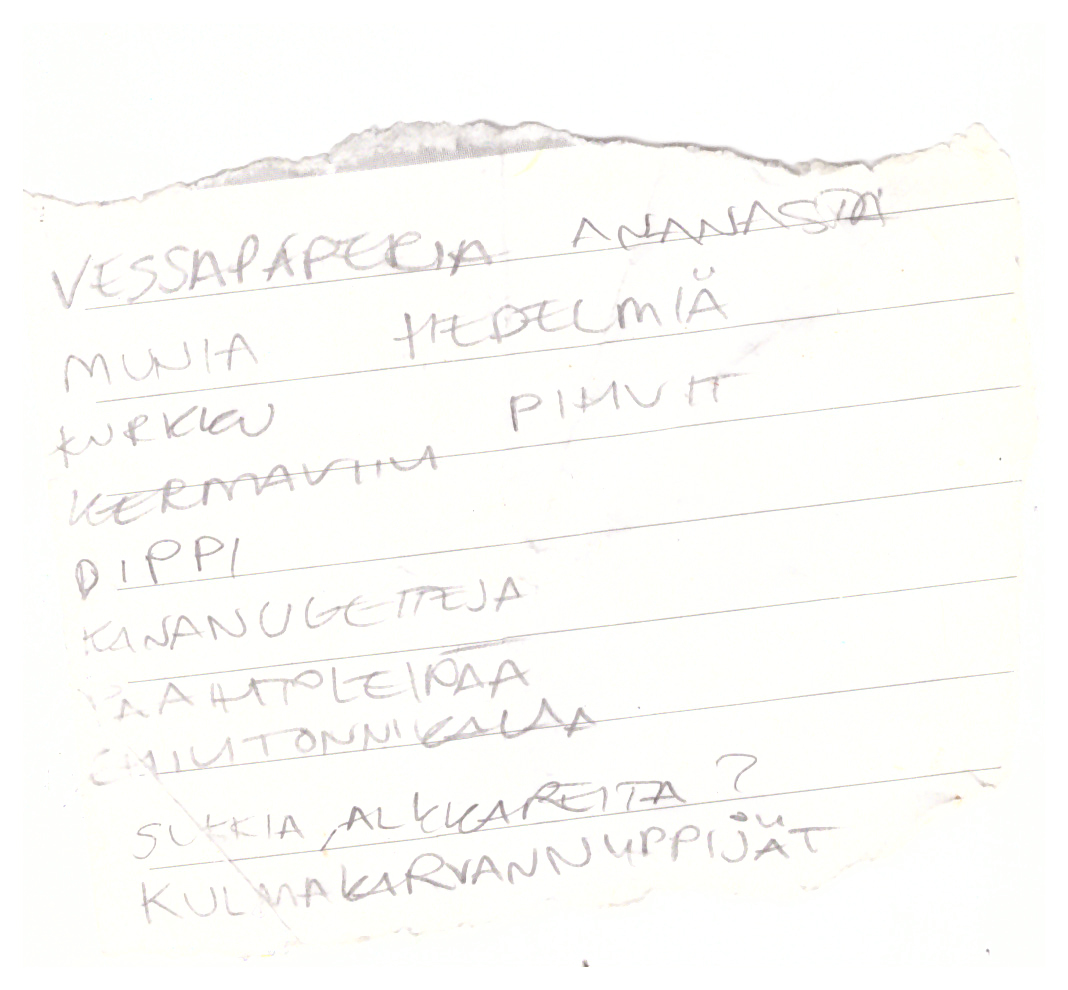 VESSAPAPERIA ANANASTA
MUNIA HEDELMIÄ
KURKKU PIHVIT
KERMAVIILI
DIPPI
KANANUGETTEJA
PAAHTOLEIPÄÄ
CHILITONNIKALAA
SUKKIA, ALKKAREITA?
KULMAKARVANNYPPIJÄT